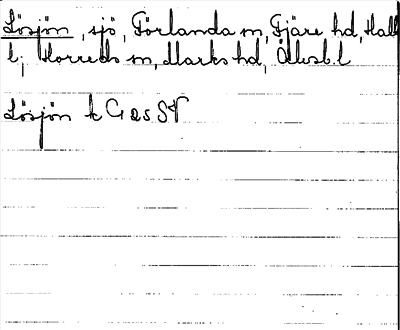 Lösjön, sjö, Förlanda sn, Fjäre hd, Hall
l; Horreds sn, Marks hd, Älvsb. l
Lösjön k G 25 SV